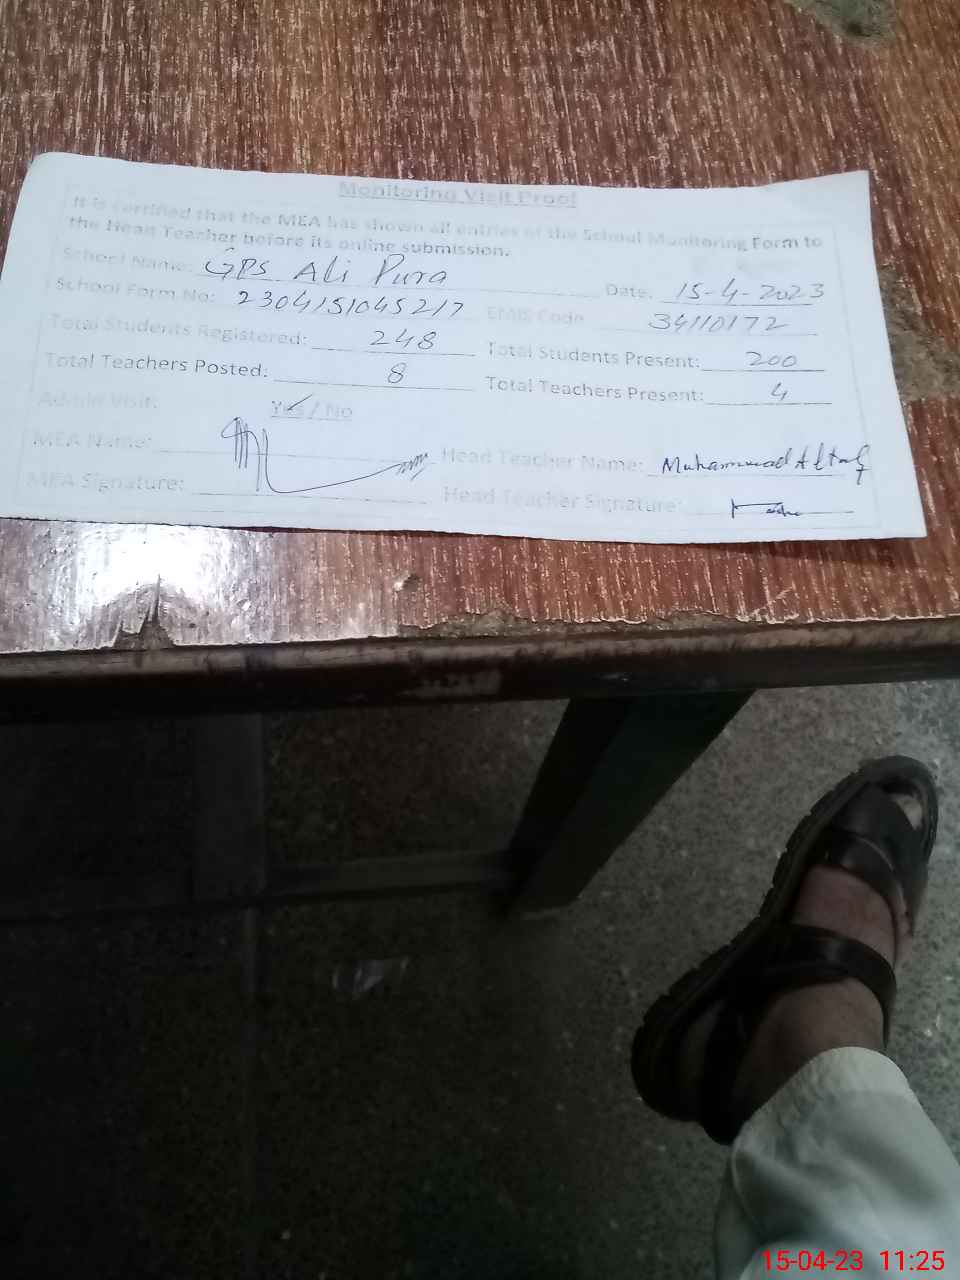 Monitoring Visit Proof
It is certified that the MEA has shown all entries of the School Monitoring Form to
the Head Teacher before its online submission.
School Name: GPS Ali Pura Date: 15-4-2023
School Form No: 2304151045217 EMIS Code 34110172
Total Students Registered: 248 Total Students Present: 200
Total Teachers Posted: 8 Total Teachers Present: 4
Admin Visit: Yes / No
MEA Name: Head Teacher Name: Muhammad Altaf
MEA Signature: Head Teacher Signature:
15-04-23 11:25